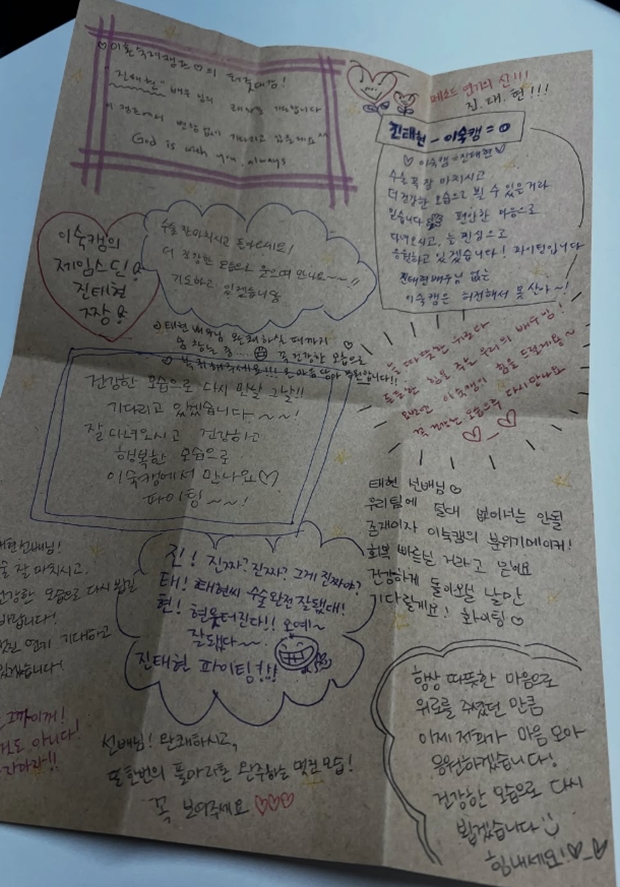 진태현 배우님의
God is with you always
메소드 연기의 신!!!
진.태.현!!!
진태현 - 이숙캠 = 0
♡ 이숙캠 = 진태현 ♡
수술 꼭 잘 마치시고
더 건강한 모습으로 뵐 수 있을거라
믿습니다 편안한 마음으로
다녀오시고, 늘 진심으로
응원하고 있겠습니다! 파이팅입니다
진태현배우님 없는
이숙캠은 허전해서 못 산다~!
이숙캠의
제임스딘
진태현
짱
수술 잘 마치시고 돌아오세요!
더 건강한 모습으로 웃으며 만나요~~!!
기도하고 있겠습니다
태현 배우님 완쾌하실 때까지
꼭 건강한 모습으로
건강한 모습으로 다시 만날 그날!!
기다리고 있겠습니다~~!
잘 다녀오시고 건강하고
행복한 모습으로
이숙캠에서 만나요♡
파이팅~~!
늘 따뜻한 위로와
든든한 힘을 주는 우리의 배우님!
이숙캠이 힘을 드릴게요~
꼭 건강한 모습으로 다시 만나요
태현 선배님
우리팀에 절대 없어서는 안될
존재이자 이숙캠의 분위기메이커!
회복 빠르실 거라고 믿어요
건강하게 돌아오실 날만
기다릴게요! 화이팅♡
태현선배님!
수술 잘 마치시고,
건강한 모습으로 다시 뵙길
바랍니다!
멋진 연기 기대하고
있겠습니다!
진! 진짜? 진짜? 그게 진짜야?
태! 태현씨 수술 완전 잘됐대!
현! 현웃터진다!! 오예~
잘됐다~~
진태현 파이팅!!!
그까이꺼!
아니다!
선배님! 완쾌하시고,
또 한번의 풀마라톤 완주하는 멋진 모습!
꼭 보여주세요 ♡♡♡
항상 따뜻한 마음으로
위로를 주셨던 만큼
이제 저희가 마음 모아
응원하겠습니다!
건강한 모습으로 다시
뵙겠습니다 :)
힘내세요!